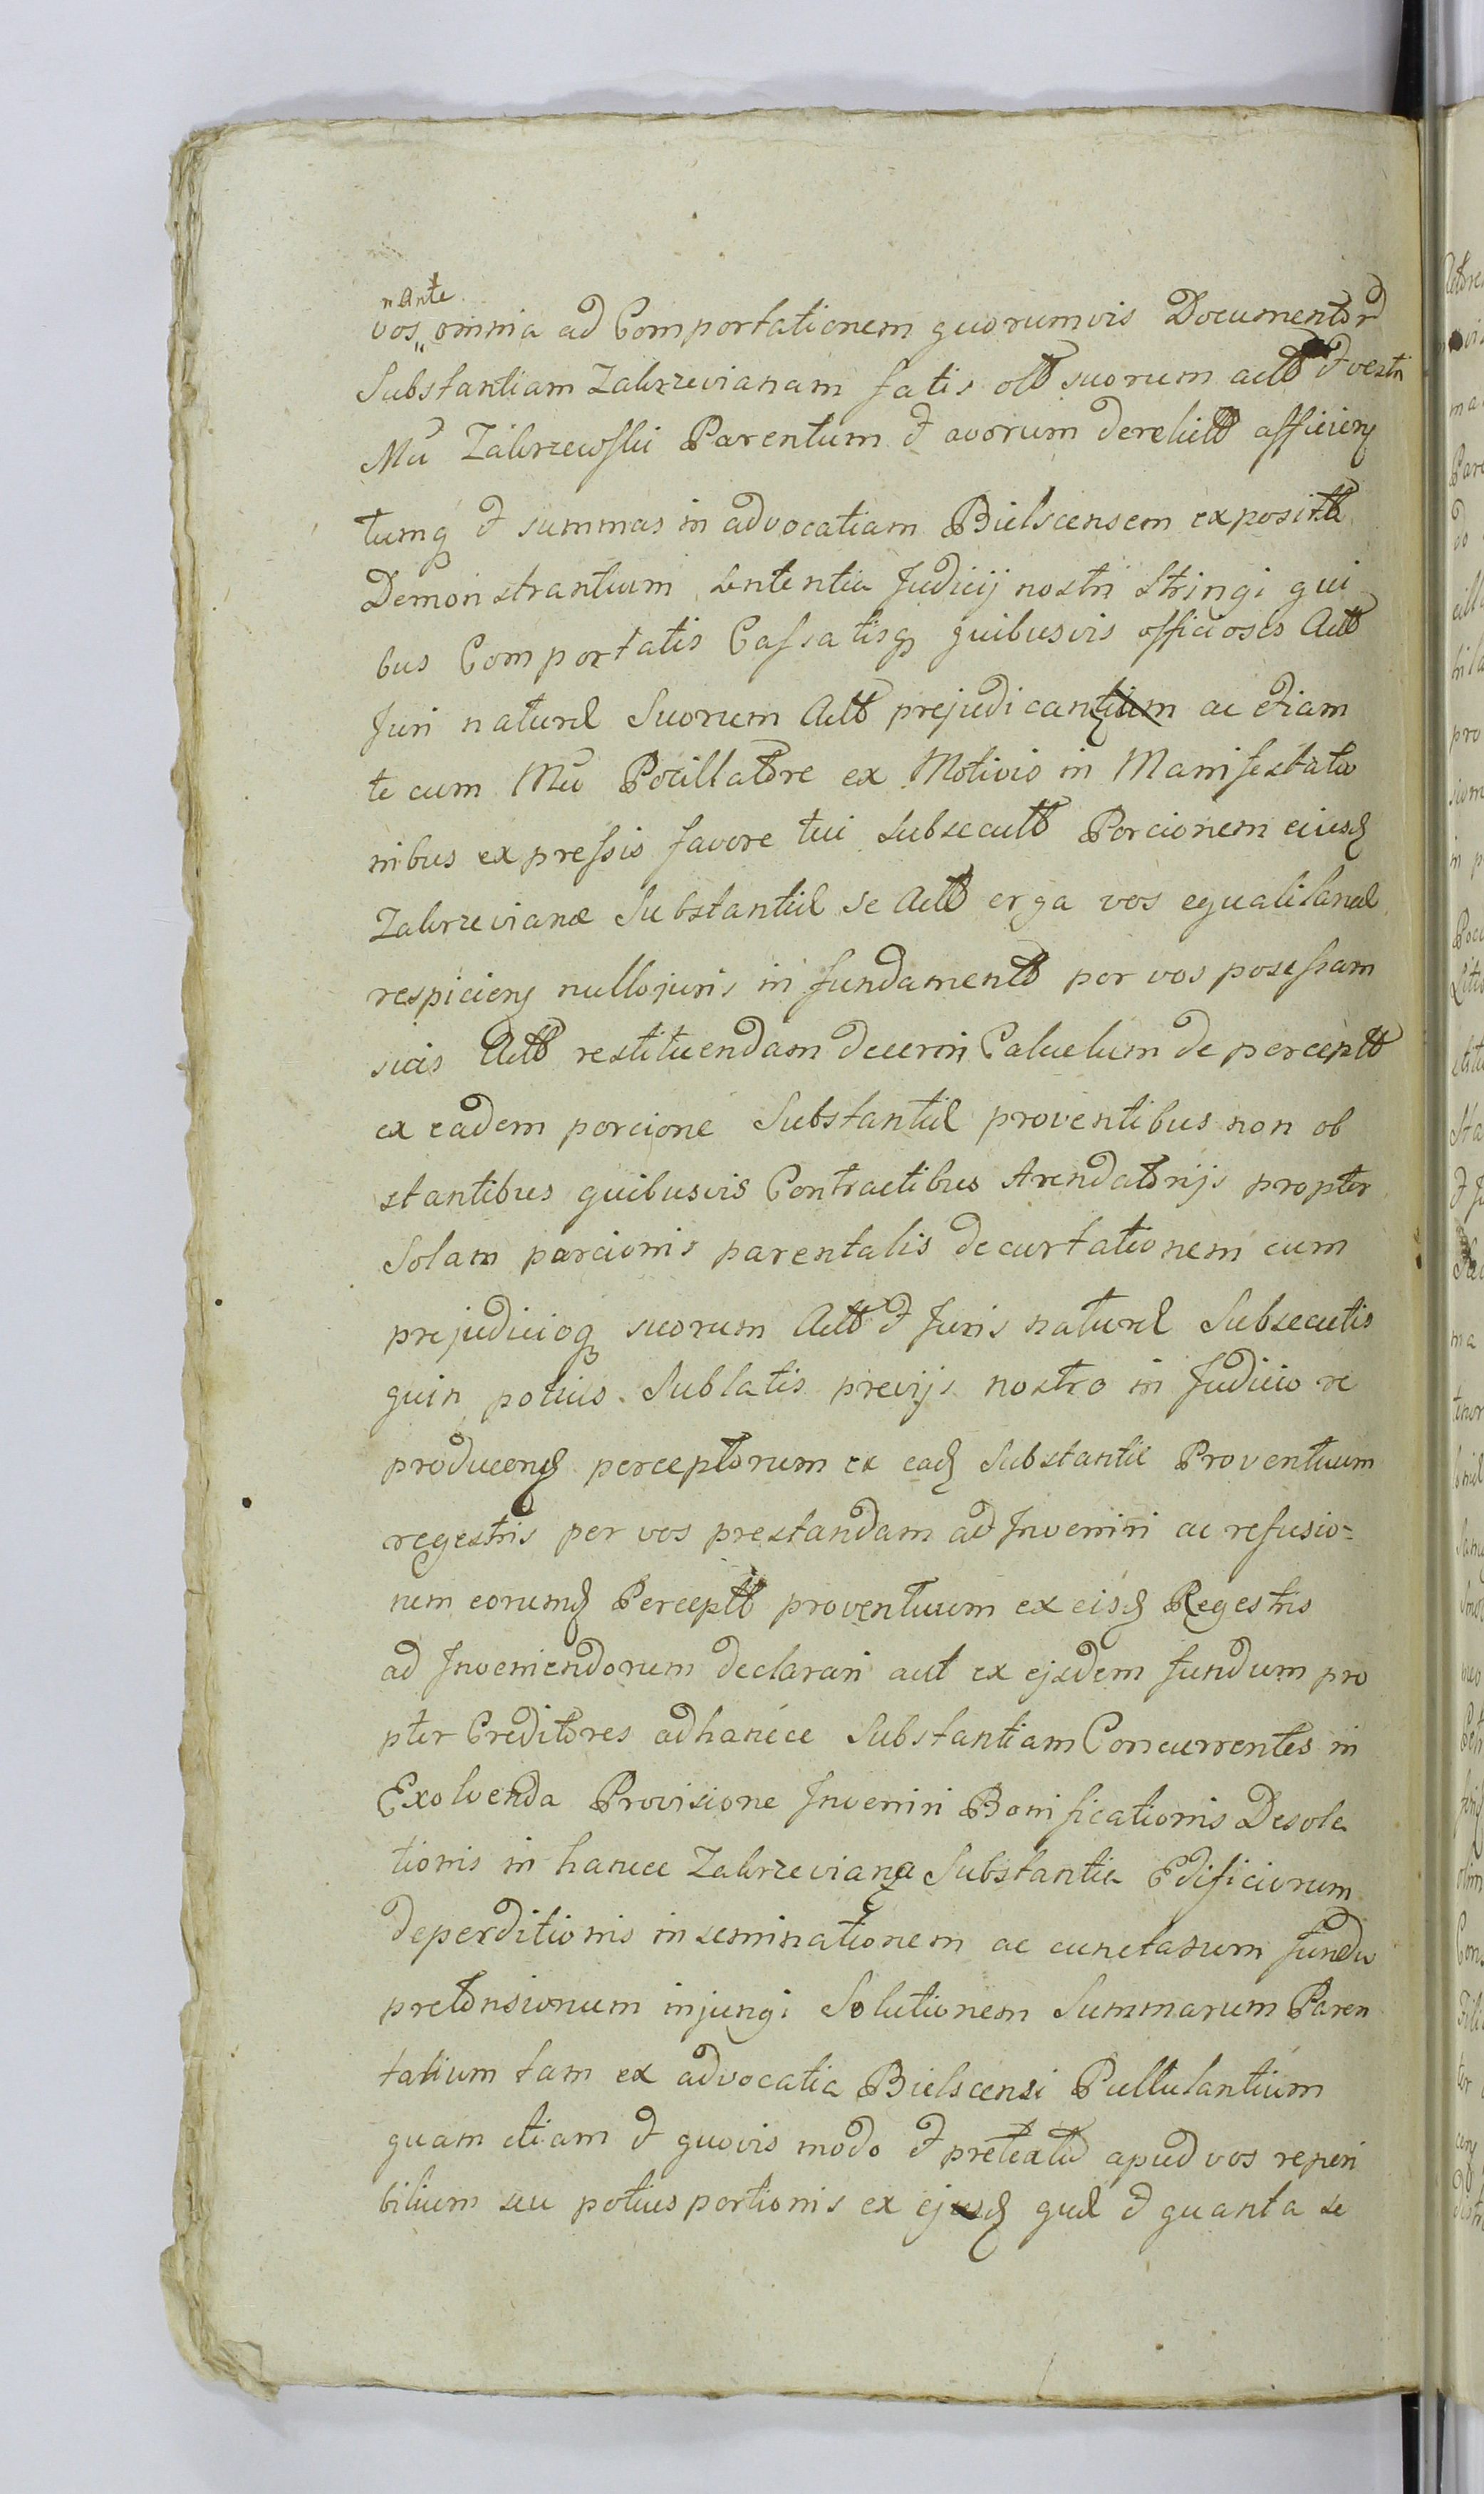 nante
vos,, omnia ad Comportationem quorumvis Documentor
Substantiam Zakrzevianam fatis olt suorum actt et vestri
Mu Zakrzewski Parentum et avorum derelictt afficien
tumq et summas in advocatiam Bielscensem expositt
Demonstrantium sententia Judicij nostri stringi qui
bus Comportatis Cassatisq quibusvis officiosis Actt
Juri natural Suorum Actt prejudicantium ac etiam
te cum Mu Pocillatore ex Motivis in Manifestatio
nibus expressis favore tui subsecutt Porcionem eiusd
Zakrzevianæ Substantiæ se Actt erga vos equalitanæ
respicien nullo juris in fundamentt per vos posessam
suis Actt restituendam decerni Calculum de perceptt
ex eadem porcione Substantiæ proventibus non ob
stantibus quibusvis Contractibus Arendatorijs propter
Solam porcionis parentalis decurtationem cum
prejudicioq suorum Actt et Juris natural Subsecutis
quin potius Sublatis previjs nostro in Judicio re
producend perceptorum ex ead Substantiæ Proventuum
regestris per vos prestandam adInveniri ac refusio-
nem eorumd Perceptt proventuum ex eisd Regestris
ad Inveniendorum declarari aut ex ejsdem fundum pro
pter Creditores ad hancce Substantiam Concurrentes in
Exolvenda Provisione Inveniri Bonificationis Desola
tionis in hancce Zakrzeviana Substantia Edificiorum
deperditionis inseminationem ac cunctarum fundi
pretensionum injungi Solutionem Summarum Paren
talium tam ex advocatia Bielscensi Pullulantium
quam etiam et quovis modo et pretextu apud vos reperi
bilium seu potius portionis ex ejusd quæ et quanta se